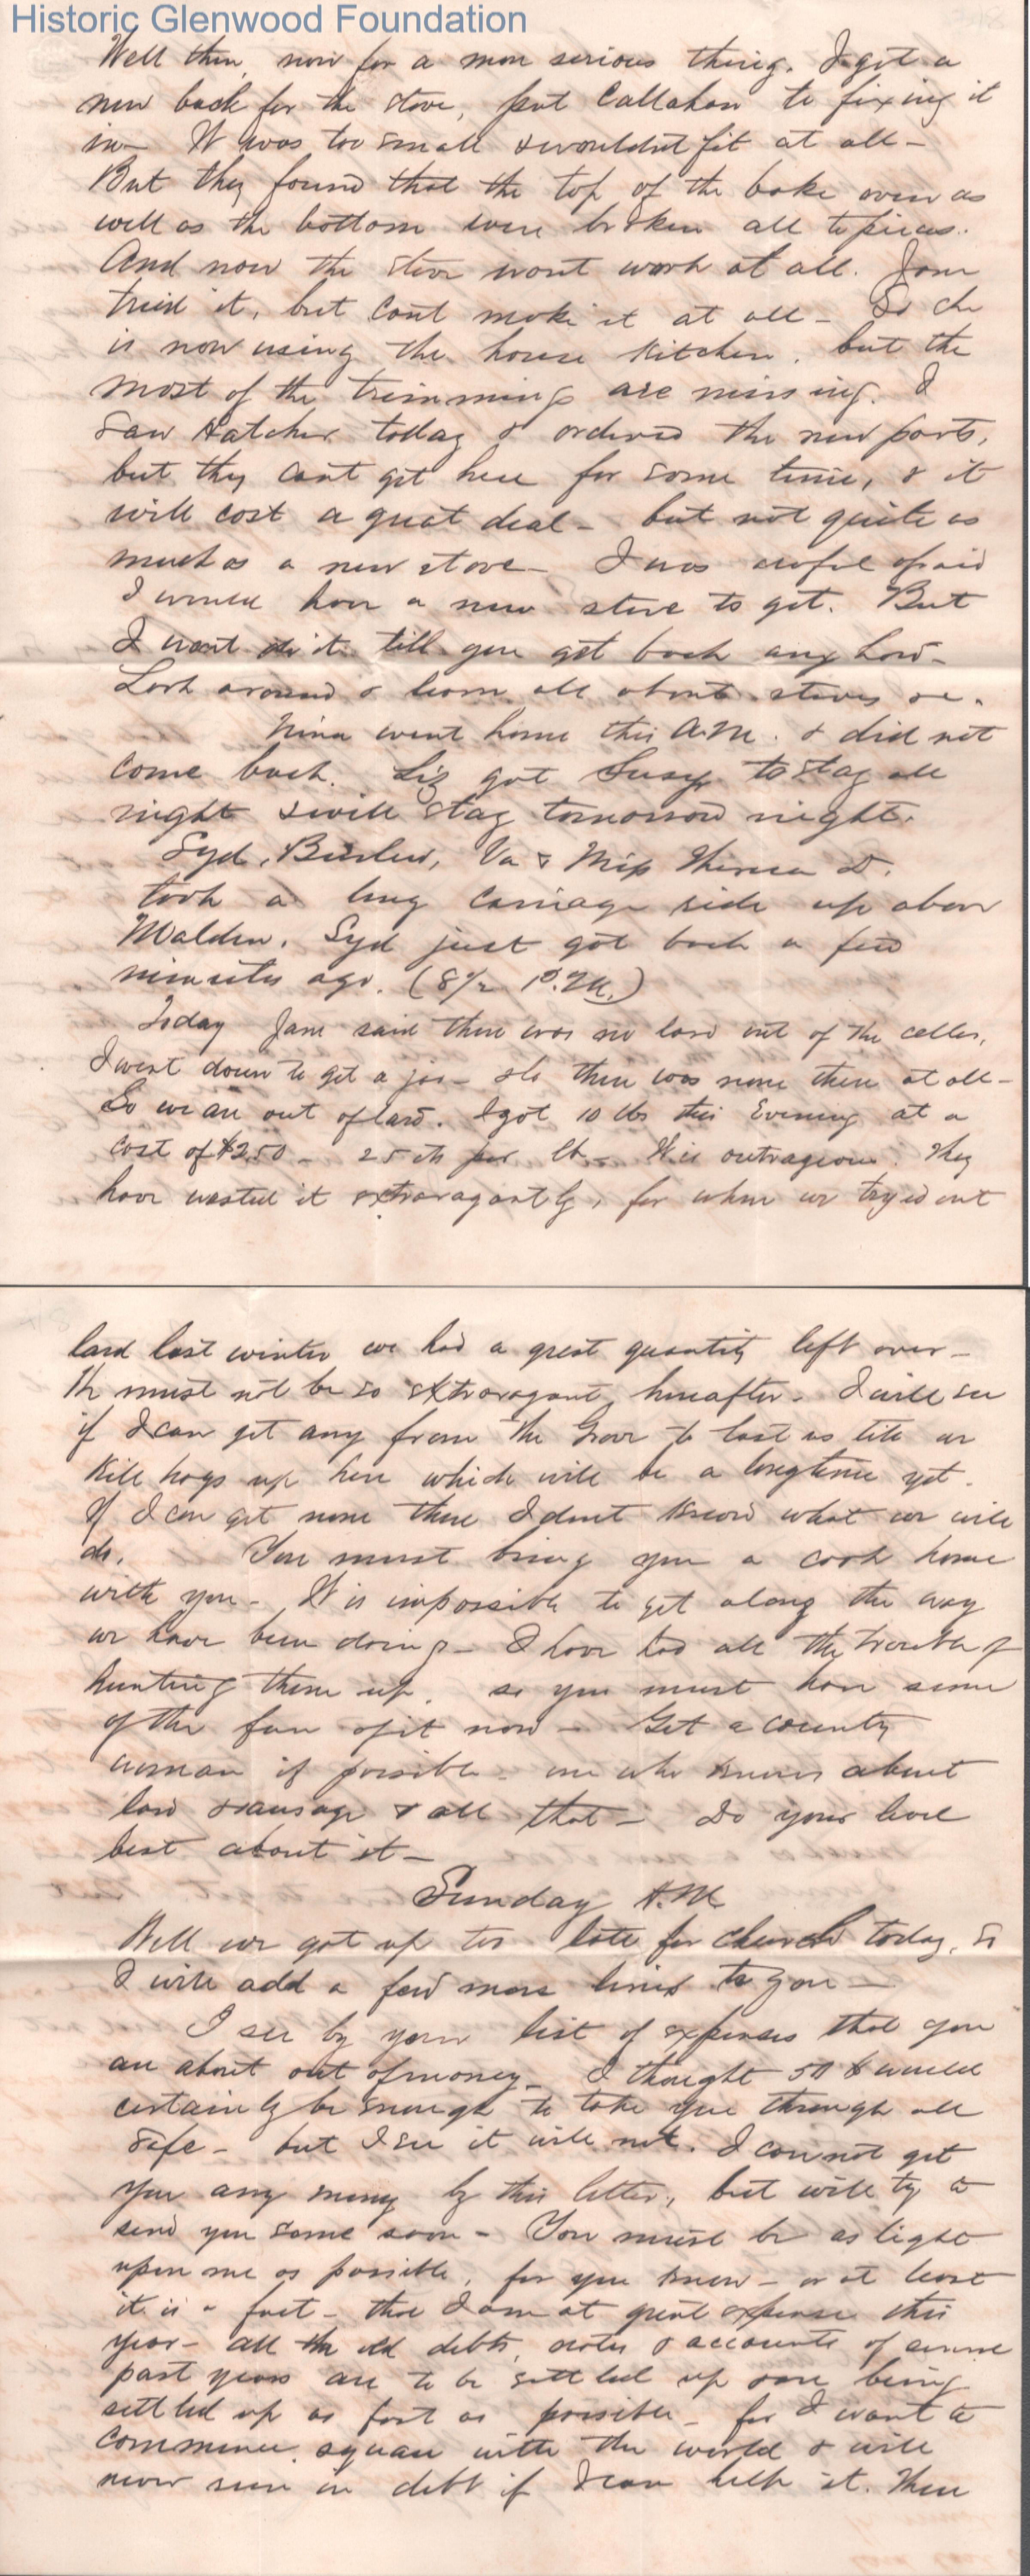 Historic Glenwood Foundation
Well then, now for a more serious thing. I got a
new back for the stove, put Callahan to fixing it
in — It was too small & wouldnt fit at all —
But they found that the top of the bake oven as
well as the bottom were broken all to pieces.
And now the stove wont work at all. Jane
tried it, but cant make it at all — So she
is now using the house kitchen, but the
most of the trimmings are missing. I
saw Hatcher today & ordered the new parts,
but they cant get here for some time, & it
will cost a great deal — but not quite as
much as a new stove — I was awful afraid
I would have a new stove to get. But
I wont do it till you get back any how —
Look around & learn all about stoves &c.
Nina went home this A.M. & did not
come back. Liz got Susy to stay all
night & will stay tomorrow night.
Syd, Va & Miss D.
took a long carriage ride up above
Malden. Syd just got back a few
minutes ago. (8 1/2 P.M.)
Today Jane said there was no lard out of the cellar,
I went down to get a jar — & lo there was none there at all —
So we are out of lard. I got 10 lbs this Evening at a
cost of $2.50 — 25 cts per lb — It is outrageous. They
have wasted it extravagantly, for when we tryed out
lard last winter we had a great quantity left over —
We must not be so extravagant hereafter — I will see
if I can get any from the Grove to last us till we
kill hogs up here which will be a longtime yet.
If I can get none there I dont know what we will
do. You must bring you a cook home
with you — It is impossible to get along the way
we have been doing — I have had all the trouble of
hunting them up, so you must have some
of the fun of it now — Get a country
woman if possible — one who knows about
lard & sausage & all that — Do your level
best about it —
Sunday A.M.
Well we got up too late for church today, so
I will add a few more lines to you —
I see by your list of expenses that you
are about out of money — I thought 50 $ would
certainly be enough to take you through all
safe — but I see it will not. I can not get
you any money by this letter, but will try to
send you some soon — You must be as light
upon me as possible, for you know — or at least
it is a fact — that I am at great expense this
year — all the old debts, notes & accounts of some
past years are to be settled up & are being
settled up as fast as possible — for I want to
commence square with the world & will
never run in debt if I can help it. Then